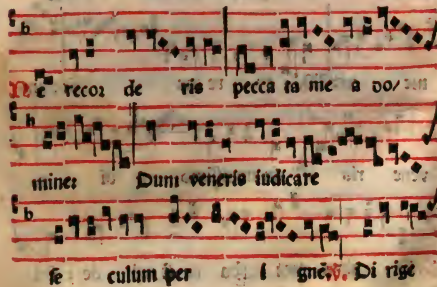 Ne recor de ris pecca ta me a do/
mine: Dum veneris iudicare
se culum per i gnē. V. Di rige